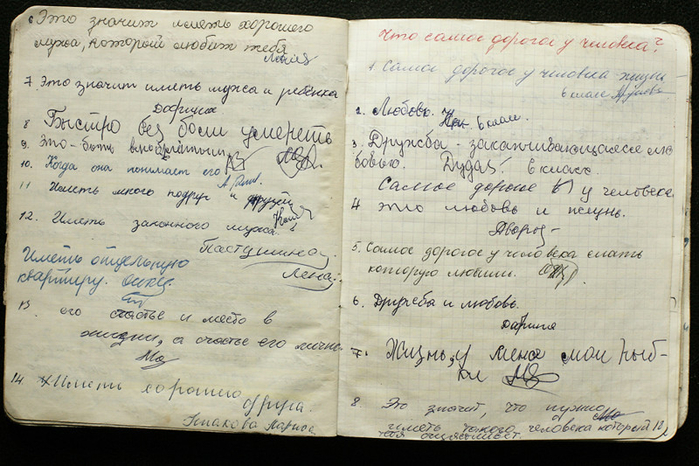 6 Это значит иметь хорошего
мужа, который любит тебя
7. Это значит иметь мужа и ребёнка
Дафния
8 Быстро без боли умереть
9. Это - быть
10. Когда она понимает его
11 Иметь много подруг и друзей
12. Иметь законного мужа.
Пастушика
Лена
Иметь отдельную
квартиру.
13. его счастье и место в
жизни, а счастье его
14 Иметь хорошего
друга.
Что самое дорогое у человека?
1 Самое дорогое у человека жизнь
6 класс
2. Любовь. 6 класс.
3. Дружба - заканчивающаяся лю
бовью. Дудая! 6 класс
Самое дорогое у человека
4 это любовь и жизнь.
5. Самое дорогое у человека спать
которую любишь.
6. Дружба и любовь.
7. Жизнь, у меня мои рыб-
ки
8. Это значит, что нужно
иметь такого человека который